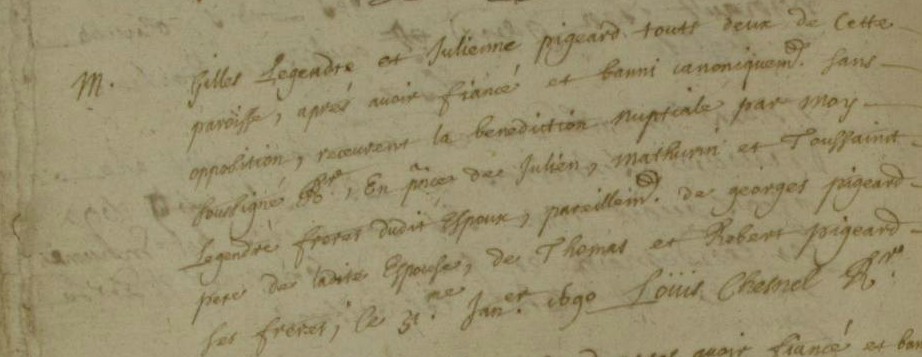 M. Gilles Legendre et Julienne pigeard touts deux de Cette
paroisse, aprés avoir fiancé et banni canoniquemt. sans
opposition, receurent la benediction nuptiale par moy
soussigné Rr., En pñce de Julien, Mathurin et Toussainct
Legendre freres dudit Espoux, pareillemt. de georges pigeard
pere de ladite Espouse, de Thomas et Robert pigeard
ses freres, ce 31.me Janer. 1690 Loüis Chesnel Rr.
avoir fiancé et